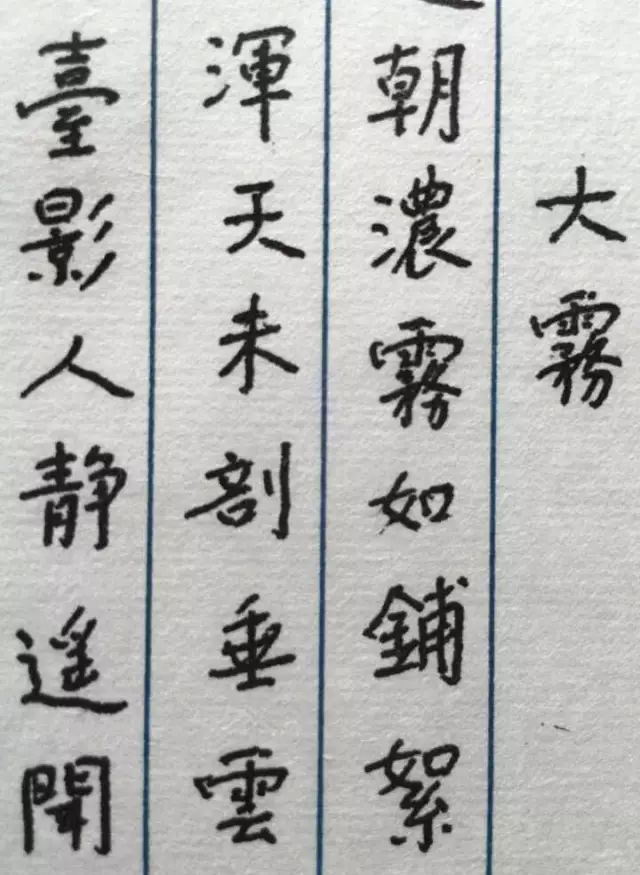 大霧
朝濃霧如鋪絮
渾天未剖垂雲
臺影人静遥聞